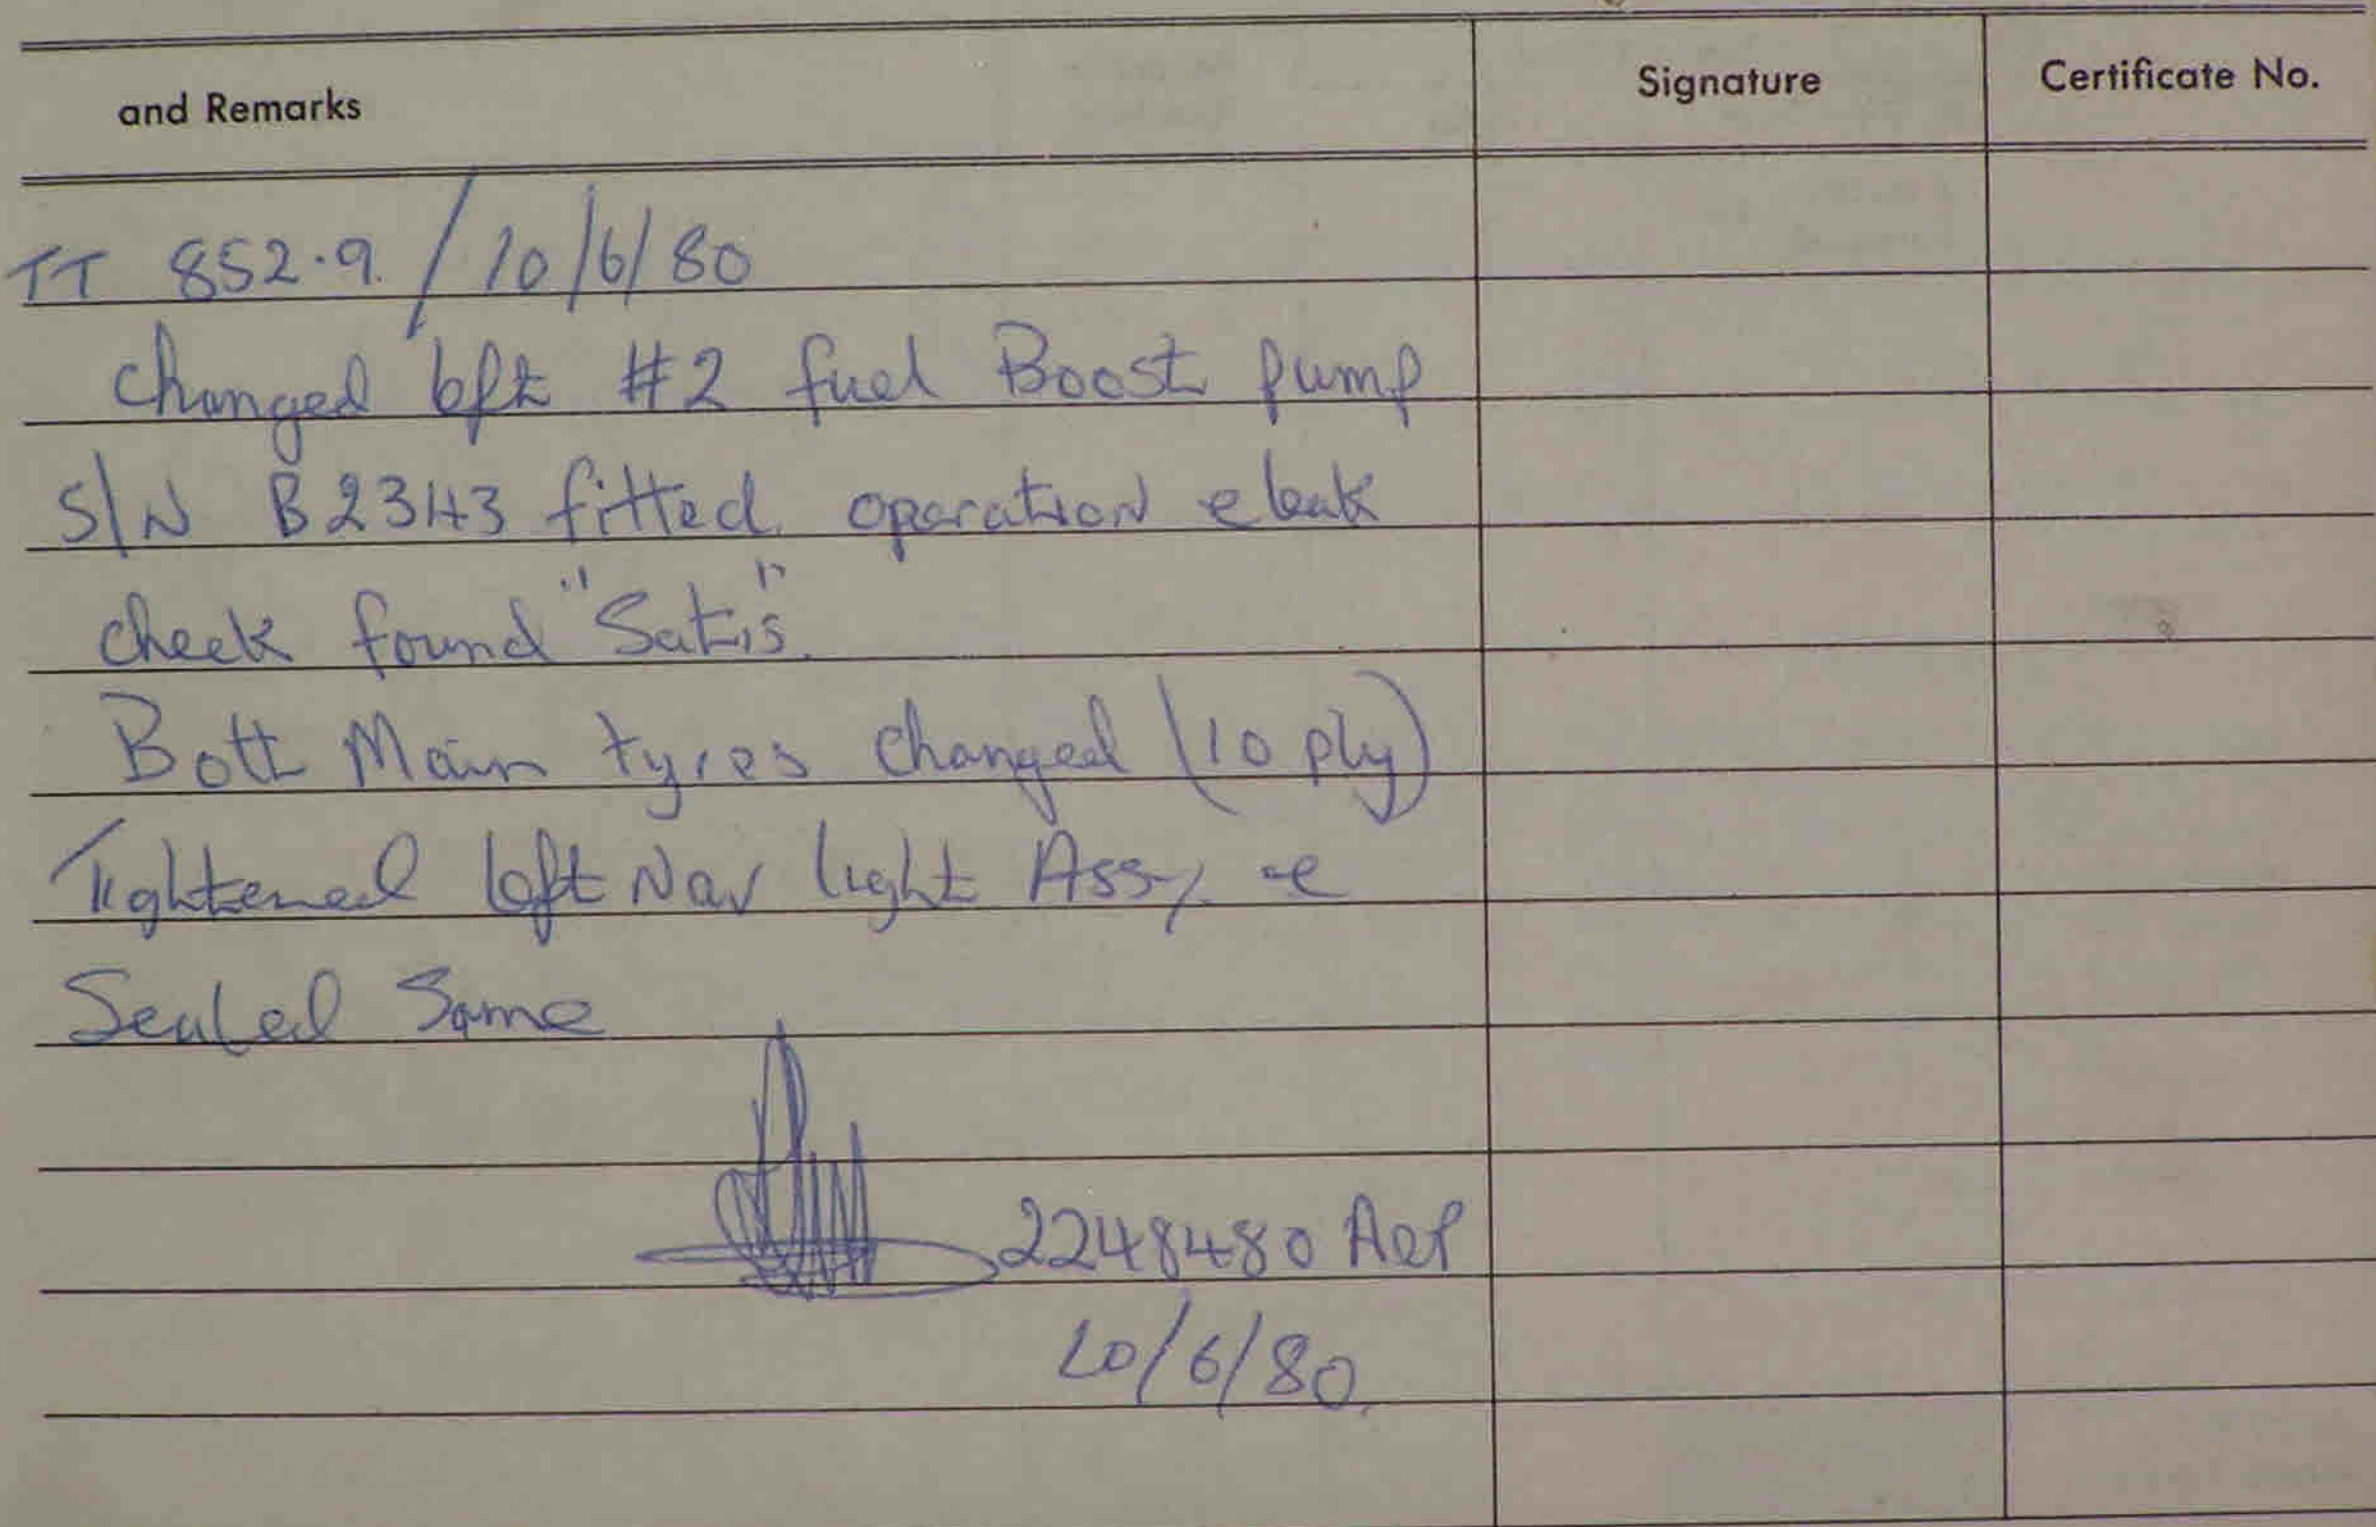 and Remarks Signature Certificate No.
TT 852.9. / 10/6/80
Changed left #2 fuel Boost pump
S/N B2343 fitted. operation & leak
check found "Satis".
Both Main tyres changed (10 ply)
Tightened left Nav light Assy. &
Sealed Same
2248480 A&P
10/6/80.